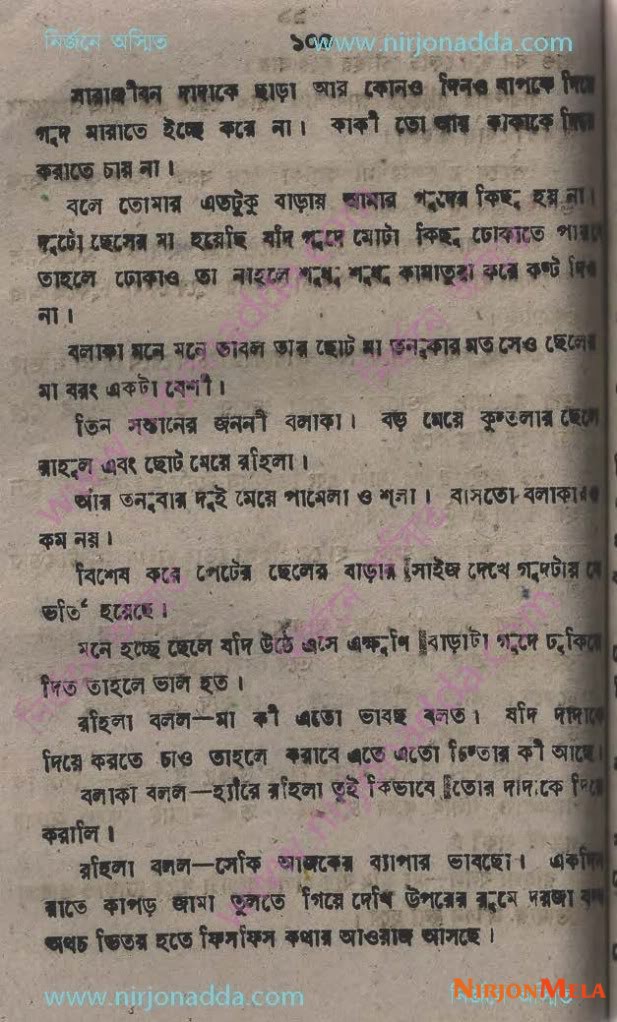 নির্জনে অস্মিত ১০০ www.nirjonadda.com
সারাজীবন দাদাকে ছাড়া আর কোনও দিনও বাপকে দিয়ে
গুদ মারাতে ইচ্ছে করে না। কাকী তো আর কাকাকে দিয়ে
করাতে চায় না।
বলে তোমার এতটুকু বাড়ায় আমার গুদের কিছু হয় না।
দুটো ছেলের মা হয়েছি যদি গুদে মোটা কিছু ঢোকাতে
তাহলে ঢোকাও তা নাহলে শুধু শুধু কামাতুরা করে কষ্ট
না।
বলাকা মনে মনে ভাবল তার ছোট মা তনুকার মত সেও ছেলের
মা বরং একটা বেশী।
তিন সন্তানের জননী বলাকা। বড় মেয়ে কুন্তলার ছেলে
রাহুল এবং ছোট মেয়ে রহিলা।
আর তনুবার দুই মেয়ে পামেলা ও শুলা। বাসতো বলাকারও
কম নয়।
বিশেষ করে পেটের ছেলের বাড়ার সাইজ দেখে গুদটার
ভর্তি হয়েছে।
মনে হচ্ছে ছেলে যদি উঠে এসে এক্ষুণি বাড়াটা গুদে ঢুকিয়ে
দিত তাহলে ভাল হত।
রহিলা বলল—মা কী এতো ভাবছ বলত। যদি দাদাকে
দিয়ে করতে চাও তাহলে করাবে এতে এতো চিন্তার কী আছে।
বলাকা বলল—হ্যাঁরে রহিলা তুই কিভাবে তোর দাদাকে দিয়ে
করালি।
রহিলা বলল—সেকি আজকের ব্যাপার ভাবছো। একদিন
রাতে কাপড় জামা তুলতে গিয়ে দেখি উপরের রুমে দরজা বন্ধ
অথচ ভিতর হতে ফিসফিস কথার আওয়াজ আসছে।
www.nirjonadda.com NIRJONMELA